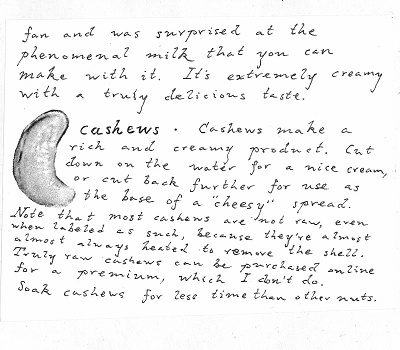 fan and was surprised at the
phenomenal milk that you can
make with it. It's extremely creamy
with a truly delicious taste.
Cashews. Cashews make a
rich and creamy product. Cut
down on the water for a nice cream,
or cut back further for use as
the base of a "cheesy" spread.
Note that most cashews are not raw, even
when labeled as such, because they're almost
almost always heated to remove the shell.
Truly raw cashews can be purchased online
for a premium, which I don't do.
Soak cashews for less time than other nuts.